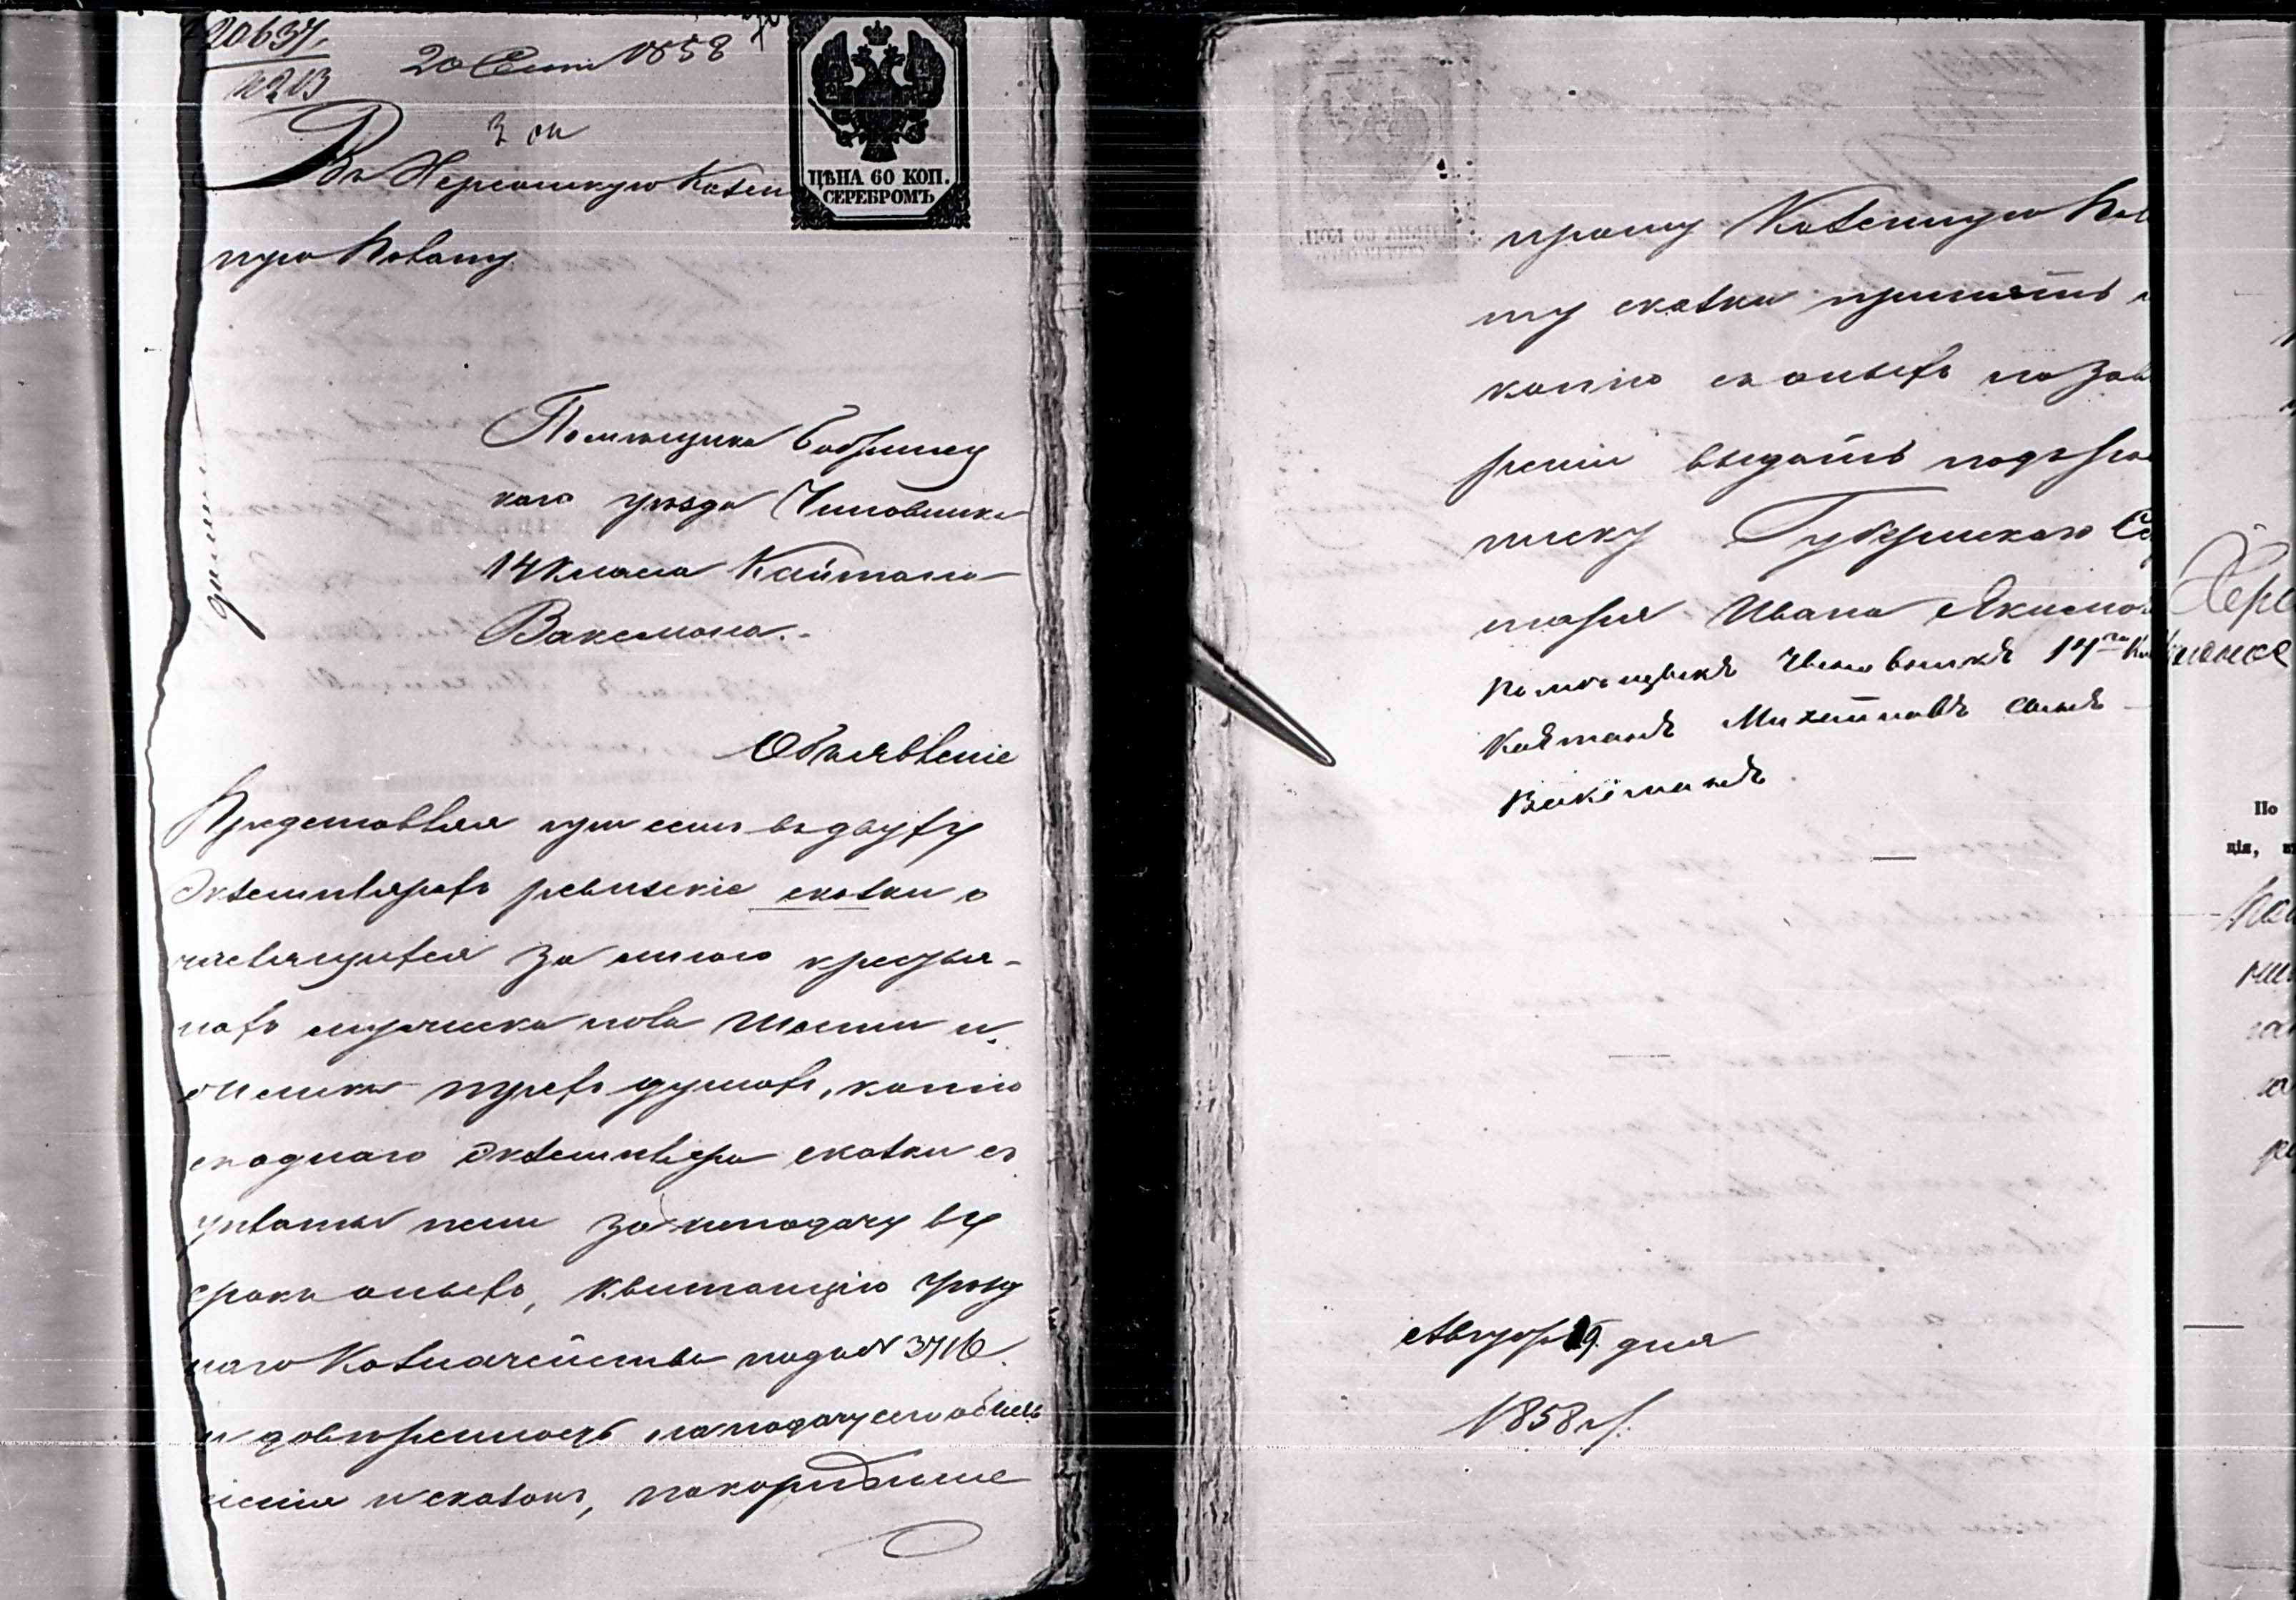 20637
20 Сент 1858
ЦѢНА 60 КОП.
СЕРЕБРОМЪ
Въ Херсонскую Казен
ную Палату
Помѣщика Бобринец
каго уѣзда Чиновника
14 класса Каитана
Ваксмана.
Объявленіе
Представляя при семъ въ двухъ
экземплярахъ ревизскіе сказки о
числящихся за мною крестья-
нахъ
трехъ душахъ, копію
съ однаго экземпляра сказки съ
уплаты пени за неподачу въ
срокъ оныхъ, квитанцію Уѣзд
наго Казначейства подъ N 3716
и довѣренность на подачу сего объяв
ленія и сказокъ, покорнѣйше
прошу Казенную Пала
ту сказки принять и
копію съ оныхъ по завѣ
реніи выдать подъ рос
писку Губернскаго Се
таря Ивана Якимо
Помѣщикъ Чиновникъ 14го Кл
Каэтанъ Михайловъ сынъ
Ваксманъ
Август 19 дня
1858 г.
Херс
По
ція,